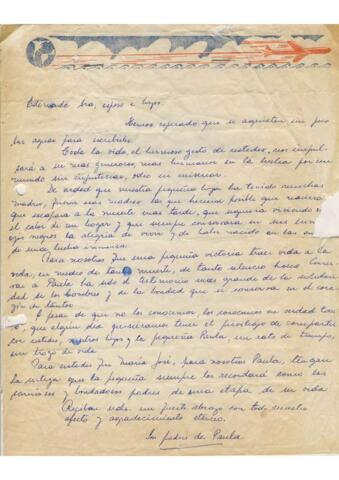 Estimada Sra, esposo e hijos
Hemos esperado que se aquieten un poco
las aguas para escribirles.
Toda la vida, el hermoso gesto de ustedes, nos impul-
sará a ser mas generosos, mas hermanos en la lucha por un
mundo sin injusticias, odio ni miseria.
Es verdad que nuestra pequeña hija ha tenido muchas
madres, fueron esas madres las que hicieron posible que naciera
que escapara a la muerte mas tarde, que siguiera viviendo en
el calor de un hogar y que siempre conservara en sus
ojos negros la alegria de vivir y de haber nacido en las
de una lucha
Para nosotros fue una pequeña victoria traer vida a la
vida, en medio de tanta muerte, de tanto silencio
a Paula ha sido el testimonio mas grande de la solidari-
dad de los hombres y de la bondad que se conserva en el cora-
zón de tantos.
A pesar de que no los conocemos, los conocemos en verdad tan-
to, que algún dia quisieramos tener el privilegio de compartir
con ustedes, vuestros hijos y la pequeña Paula, un rato de tiempo,
un trozo de vida.
Para ustedes fue María José, para nosotros Paula, tengan
la certeza que la pequeña siempre los recordará como los
generosos y bondadosos padres de una etapa de su vida
Reciban uds. un fuerte abrazo con todo nuestro
afecto y agradecimiento eterno.
Los padres de Paula